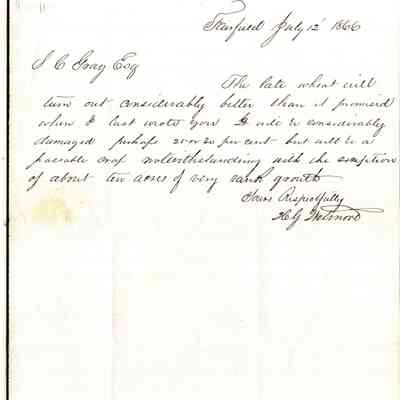 Fairfield July 12 1866
S C Gray Esq
The late wheat will
turn out considerably better than it promised
when I last wrote you It will be considerably
damaged perhaps 25 or 30 per cent but will be a
passable crop notwithstanding with the exception
of about ten acres of very rank growth
Yours Respectfully
H G